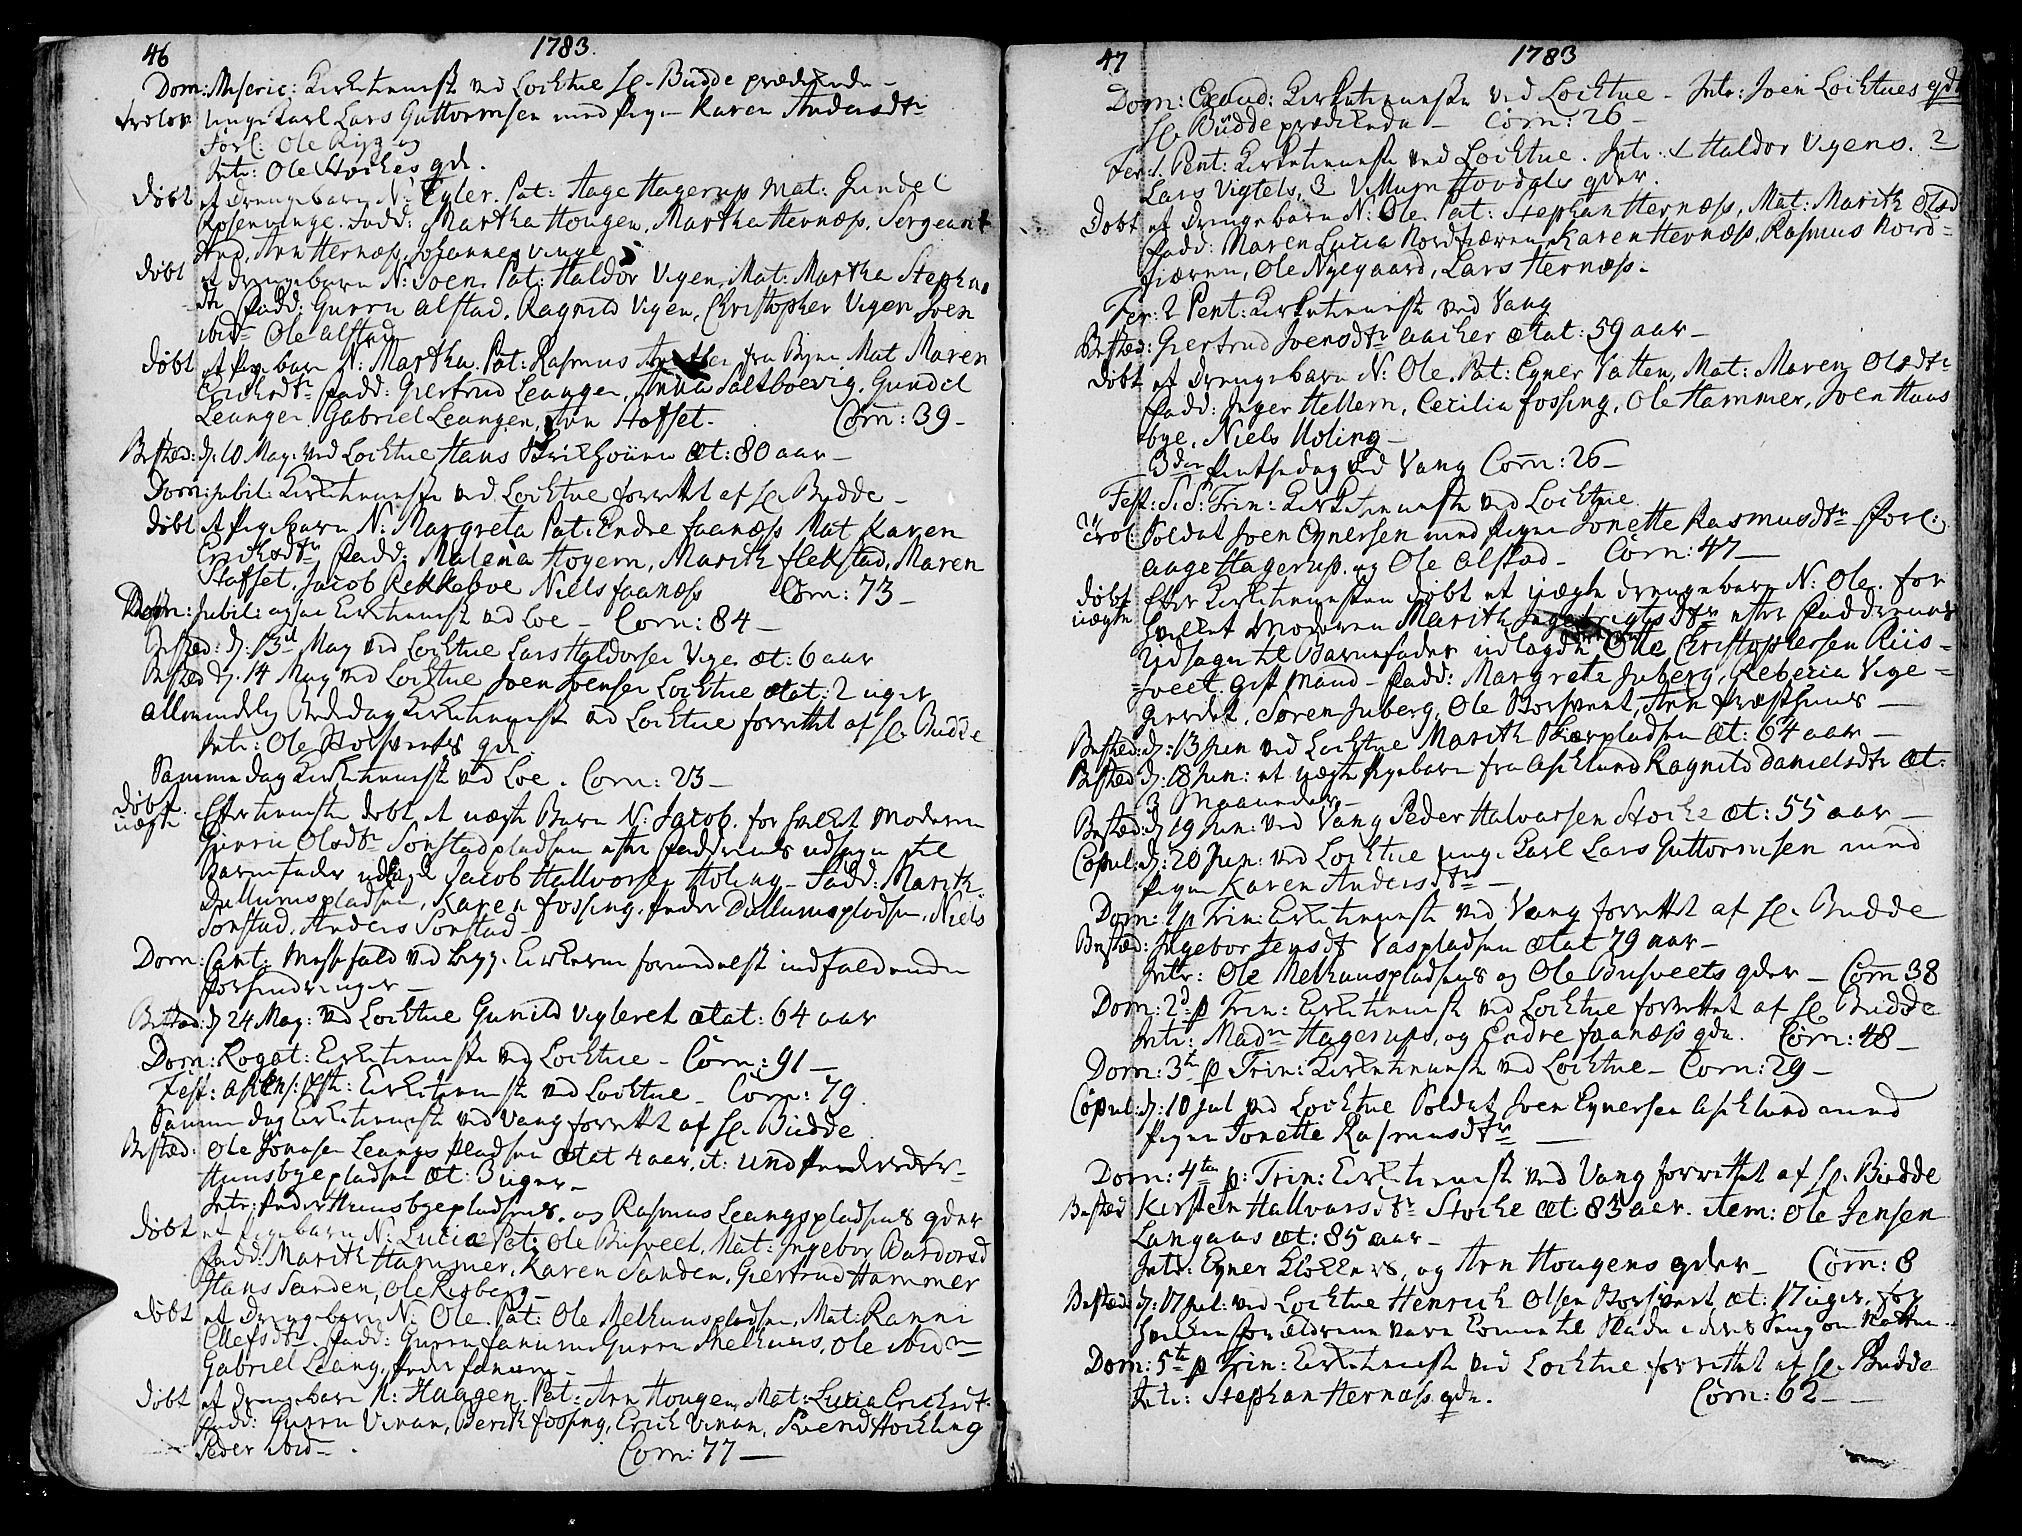 46
1783.
Dom: Miseric: Kirketieneste ved Lochtue Hr. Budde prædikende -
trolov unge Karl Lars Guttormsen med Pigen Karen Andersdtr
Forl: Ole
Intr: Ole Stockes qde.
Døbt et Drengebarn N: Eyler. Pat: Aage Hagerup Mat: Gundel
Rosenvinge. Fadd: Martha Hougen, Martha Hernæss, Sergeant
Arn Hernæss, Johannes Vinge
Døbt et Drengebarn N: Joen. Pat: Haldor Vigen, Mat: Martha Stephens
dtr Fadd: Gurru Alstad, Ragnild Vigen, Christopher Vigen Joen
ibid Ole Alstad
Døbt et Pigebarn N: Martha. Pat: Rasmus fra Byen Mat Maren
Erichsdtr Fadd: Giertrud Leangen, Anna Saltboevig, Gundel
Leangen Gabriel Leangen, Arn Hofset. Com: 39 -
Bested: d: 10 May. ved Lochtue Hans æt: 80 aar -
Dom: Jubil: Kirketieneste ved Lochtue forrettet af Hr. Budde -
Døbt et Pigebarn N: Margreta Pat: Endre Faanæss Mat Karen
Erichsdtr Fadd: Malena Hoyem, Marith Flekstad, Maren
Hofset, Jacob Rekkeboe Niels Faanæss Com: 73 -
Dom: Jubil: ogsaa Kirketieneste ved Loe - Com: 84 -
Bested: d: 13d May ved Lochtue Lars Haldorsen Vigen æt: 6 aar
Bested d: 14 May ved Lochtue Joen Joensen Lochtue ætat: 2 uger
Allmindelig Bededag Kirketieneste ved Lochtue forrettet af Hr. Budde
Intr: Ole Borsveets qde.
Samme dag Kirketieneste ved Loe. Com: 23 -
Døbt
uægte Efter tienesten døbt et uægte Barn N: Jacob. for hvilket Moderen
Gurru Olsdtr Sonstadpladsen efter Faddernes udsagn til
Barnefader udlagde Jacob Hallvorsen Holing - Fadd: Marith
Dullumspladsen, Karen Fossing, Peder Dullumspladsen, Niels
Sonstad, Anders Sonstad -
Dom: Cant: Messefald ved begge Kirkerne formedelst indfaldende
forhindringer -
Bested: d 24 May: ved Lochtue Gunild Vigleret ætat: 64 aar
Dom: Rogat: Kirketieneste ved Lochtue - Com: 91 -
Fest: Ascens: Chr: Kirketieneste ved Lochtue - Com: 79.
Samme dag Kirketieneste ved Vang forrettet af Hr. Budde
Bested: Ole Jonsen Leangs Pladsen ætat 4 aar, it: Und Pedersdtr -
Huusbyepladsen æt: 3 uger -
Intr: Peder Huusbyepladsens, og Rasmus Leangspladsens qder
Døbt et Pigebarn N: Lucia Pat: Ole Busveet, Mat: Ingebor Bardorsd
Fadd: Marith Hammer, Karen Sanden, Giertrud Hammer
Hans Sanden, Ole Risberg -
Døbt et Drengebarn N: Ole Pat: Ole Melhuuspladsen, Mat: Ranni
Ellefsdtr. Fadd: Gurru Fanum Gurru Melhuus, Ole ibid
Gabriel Leang, Peder Fanum -
Døbt et Drengebarn N: Haagen. Pat: Arn Hougen Mat: Lucia Erichsdt:
Fadd: Gurru Vinan, Berith Fossing, Erich Vinan, Svend Hockling
Peder ibid - . Com: 77 -
47
1783
Dom: Exaud: Kirketieneste ved Lochtue - Intr: Joen Lochtues qde
Hr. Budde prædikede - Com: 26 -
Fer: 1. Pent: Kirketieneste ved Lochtue. Intr: 1 Haldor Vigens. 2
Lars Vigtels, 3 Villum Hovdals qder.
Døbt et Drengebarn N: Ole. Pat: Stephan Hernæss, Mat: Marith Olsd
Fadd: Maren Lucia Nordfiæren, Karen Hernæss, Rasmus Nord-
fiæren, Ole Nyegaard, Lars Hernæss.
Fer: 2 Pent: Kirketieneste ved Vang
Bested: Giertrud Joensdtr Aacker ætat: 59 aar -
Døbt et Drengebarn N: Ole. Pat: Eyner Vatten, Mat: Maren Olsdtr
Fadd: Inger Hellem, Cecilia Fossing, Ole Hammer, Joen Huus
bye, Niels Holing -
3die Pintsedag ved Vang Com: 26 -
Fest: S.S: Trin: Kirketieneste ved Lochtue
Trol: Soldat Joen Eynersen med Pigen Jonette Rasmusdtr Forl:
Aage Hagerup, og Ole Alstad - Com: 47 -
Døbt
uægte Efter Kirketienesten døbt et uægte Drengebarn N: Ole. for
hvilket Moderen Marith Ingebrigtsdtr efter Faddernes
Udsagn til Barnefader udlagde Ole Christophersen Riis-
hveet. gift Mand - Fadd: Margrete Juberg, Rebecca Vige-
gierdet, Søren Juberg, Ole Borsveet, Arn Præsthuus -
Bested: d: 13 Jun ved Lochtue Marith Skierpladsen æt: 64 aar -
Bested d: 18 Jun: et uægte Pigebarn fra Asklund Ragnild Danielsdtr æt:
3 Maaneder -
Bested: d 19 Jun: ved Vang Peder Halvarsen Stocke æt: 55 aar -
Copul: d: 20 Jun: ved Lochtue unge Karl Lars Guttormsen med
Pigen Karen Andersdtr -
Dom: 1 p Trin: Kirketieneste ved Vang forrettet af Hr. Budde
Bested: Ingebor Jensdtr Vaspladsen ætat 79 aar -
Intr: Ole Melhuuspladsens og Ole Busveets qder - Com 38
Dom: 2d p Trin: Kirketieneste ved Lochtue forrettet af Hr. Budde
Intr: Madm Hagerups, og Endre Faanæss qde. Com: 48 -
Dom: 3tie p Trin: Kirketieneste ved Lochtue - Com: 29 -
Copul: d: 10 Jul ved Lochtue Soldat Joen Eynersen Asklund med
Pigen Jonette Rasmusdtr -
Dom: 4te p: Trin: Kirketieneste ved Vang forrettet af Hr. Budde
Bested Kirsten Hallvarsdtr Stocke æt: 83 aar. item: Ole Jensen
Langaas æt: 85 aar -
Intr: Eyner Klokkers, og Arn Hougens qder - Com: 8
Bested: d: 17 Jul: ved Lochtue Henrich Olsen Borsveet æt: 17 uger, for
hvilken Forældrene vare komne til Skade i deres Seng om Natten -
Dom: 5te p Trin: Kirketieneste ved Lochtue forrettet af Hr. Budde
Intr: Stephan Hernæss qde. Com: 62 -